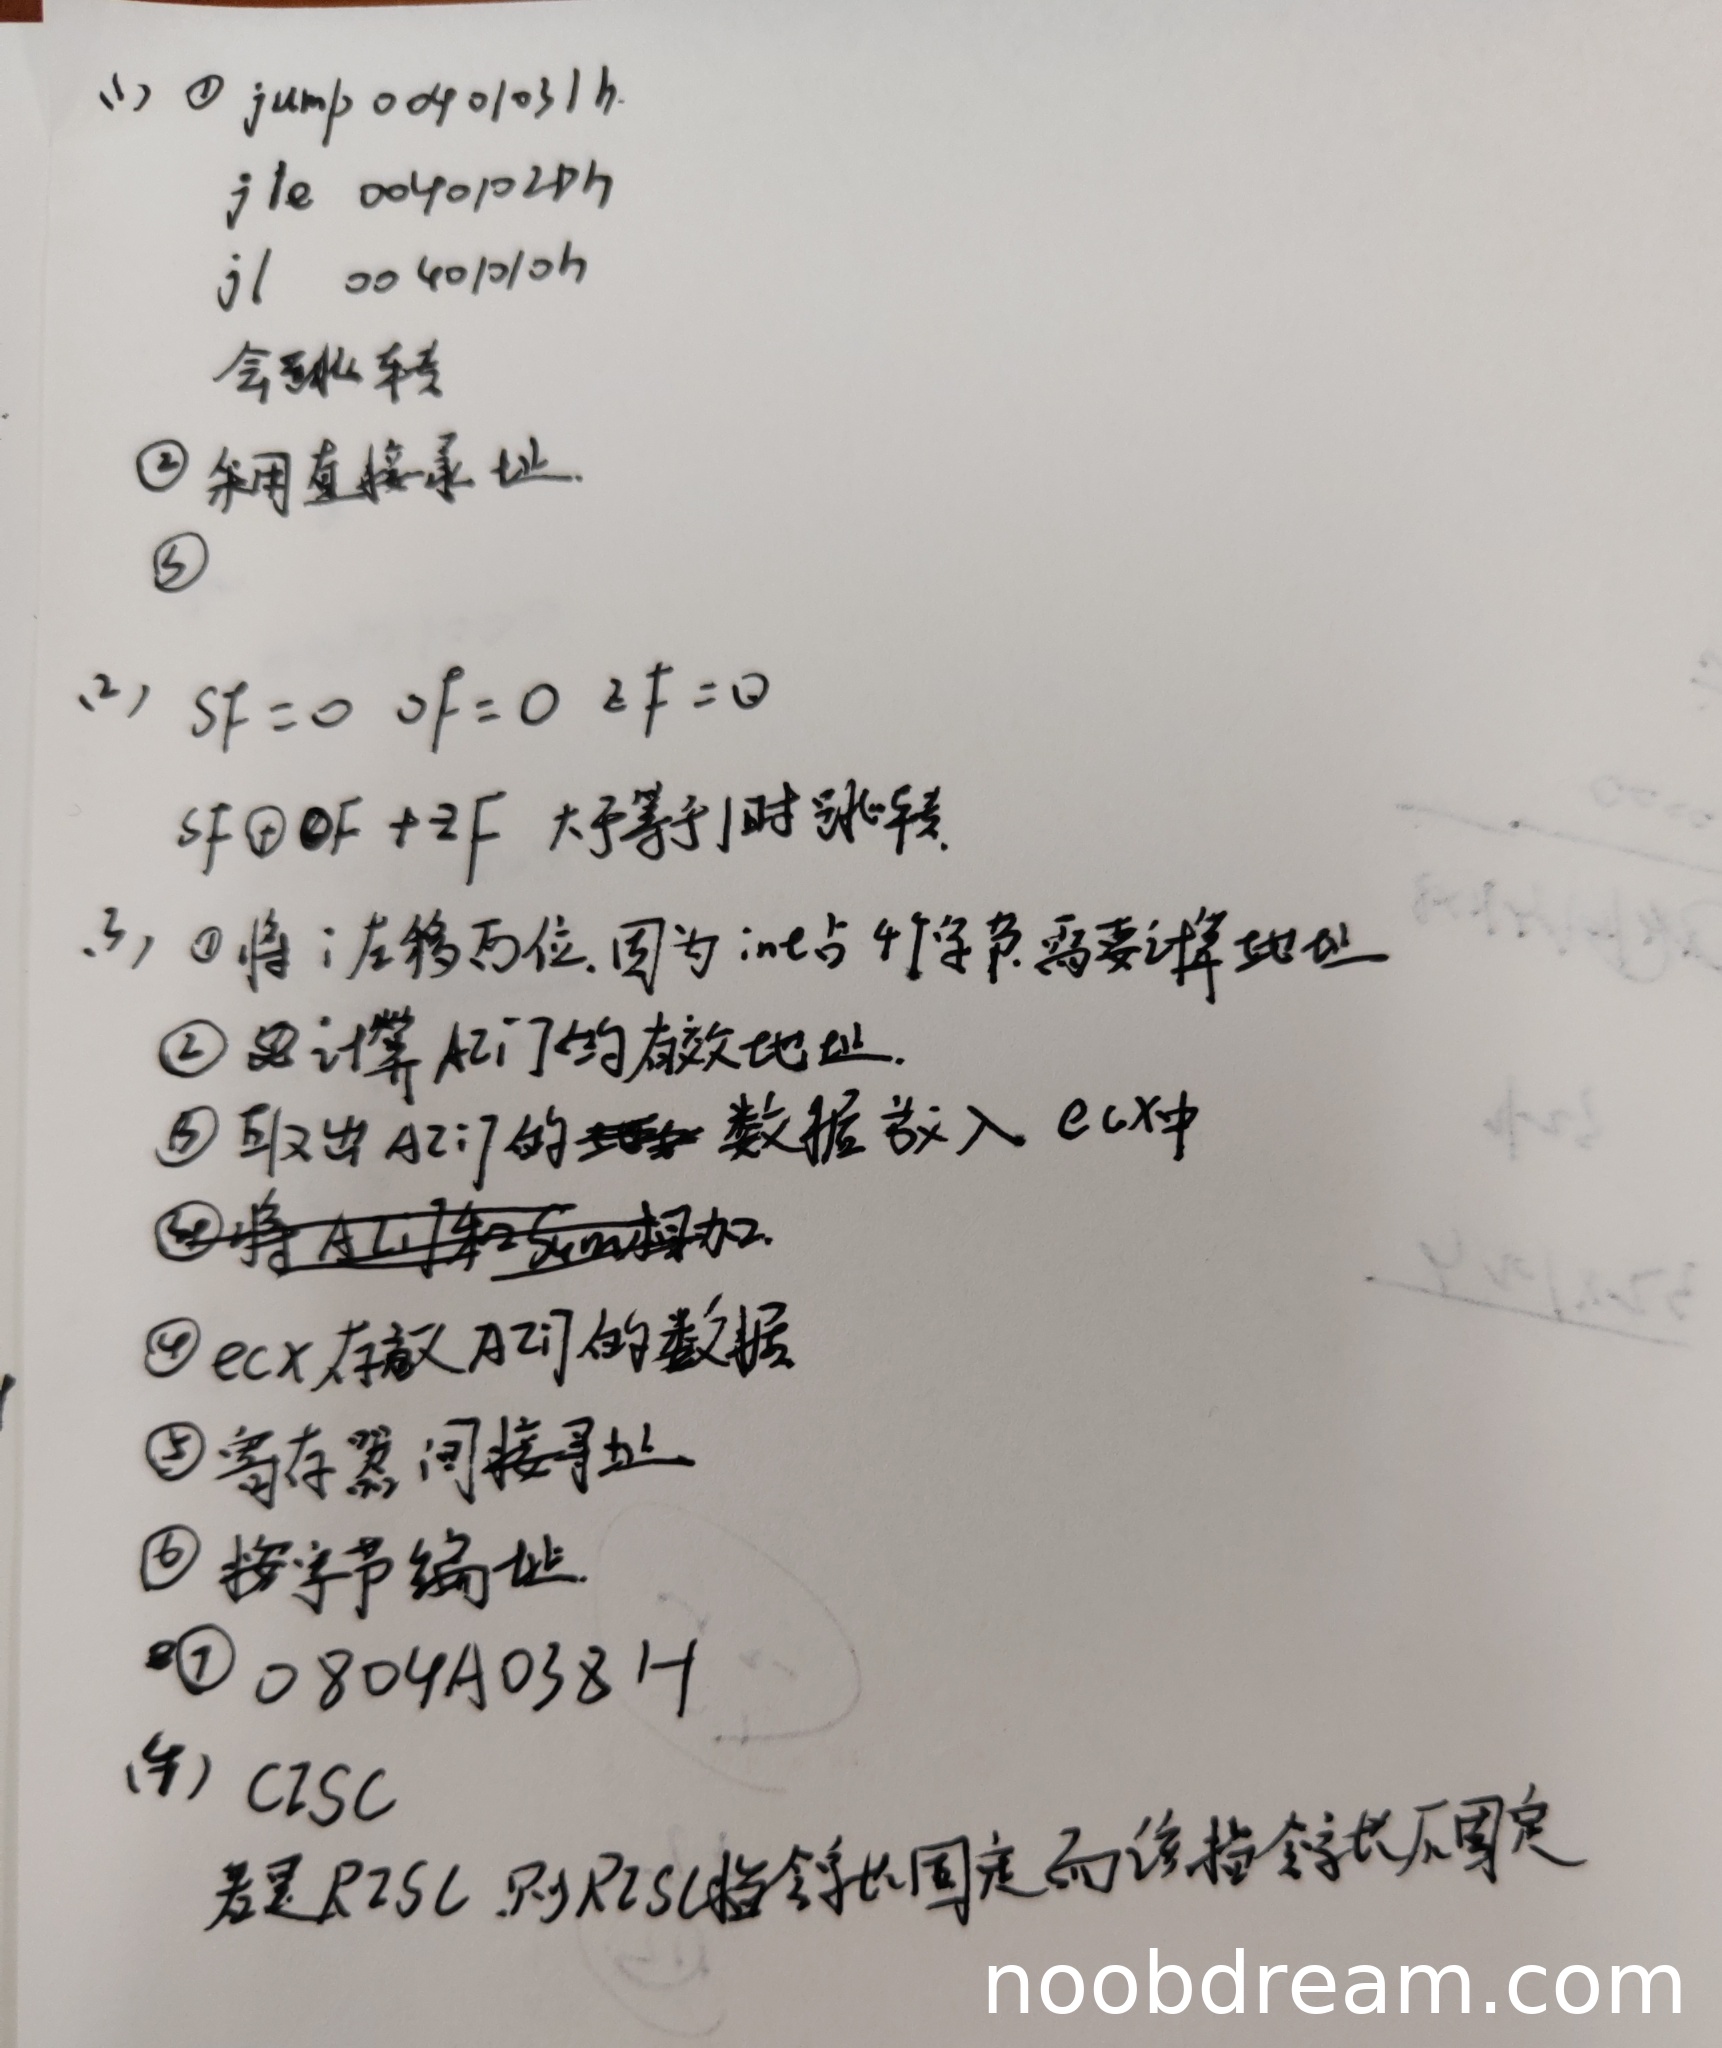 (1) ① jump 00401031h.
jle 0040102Dh
jl 00401010h
会跳转
② 采用直接寻址.
③
(2) SF=0 OF=0 ZF=0
SF⊕OF+ZF 大于等于1时跳转.
(3) ① 将i左移两位.因为int占4个字节.需要计算地址
② 计算A[i]的有效地址.
③ 取出A[i]的数据放入ecx中
④ 将A[i]和Sum相加.
④ ecx存放A[i]的数据
⑤ 寄存器间接寻址
⑥ 按字节编址.
⑦ 0804A038H
(4) CISC
若是RISC.则RISC指令字长固定而该指令字长不固定
noobdream.com